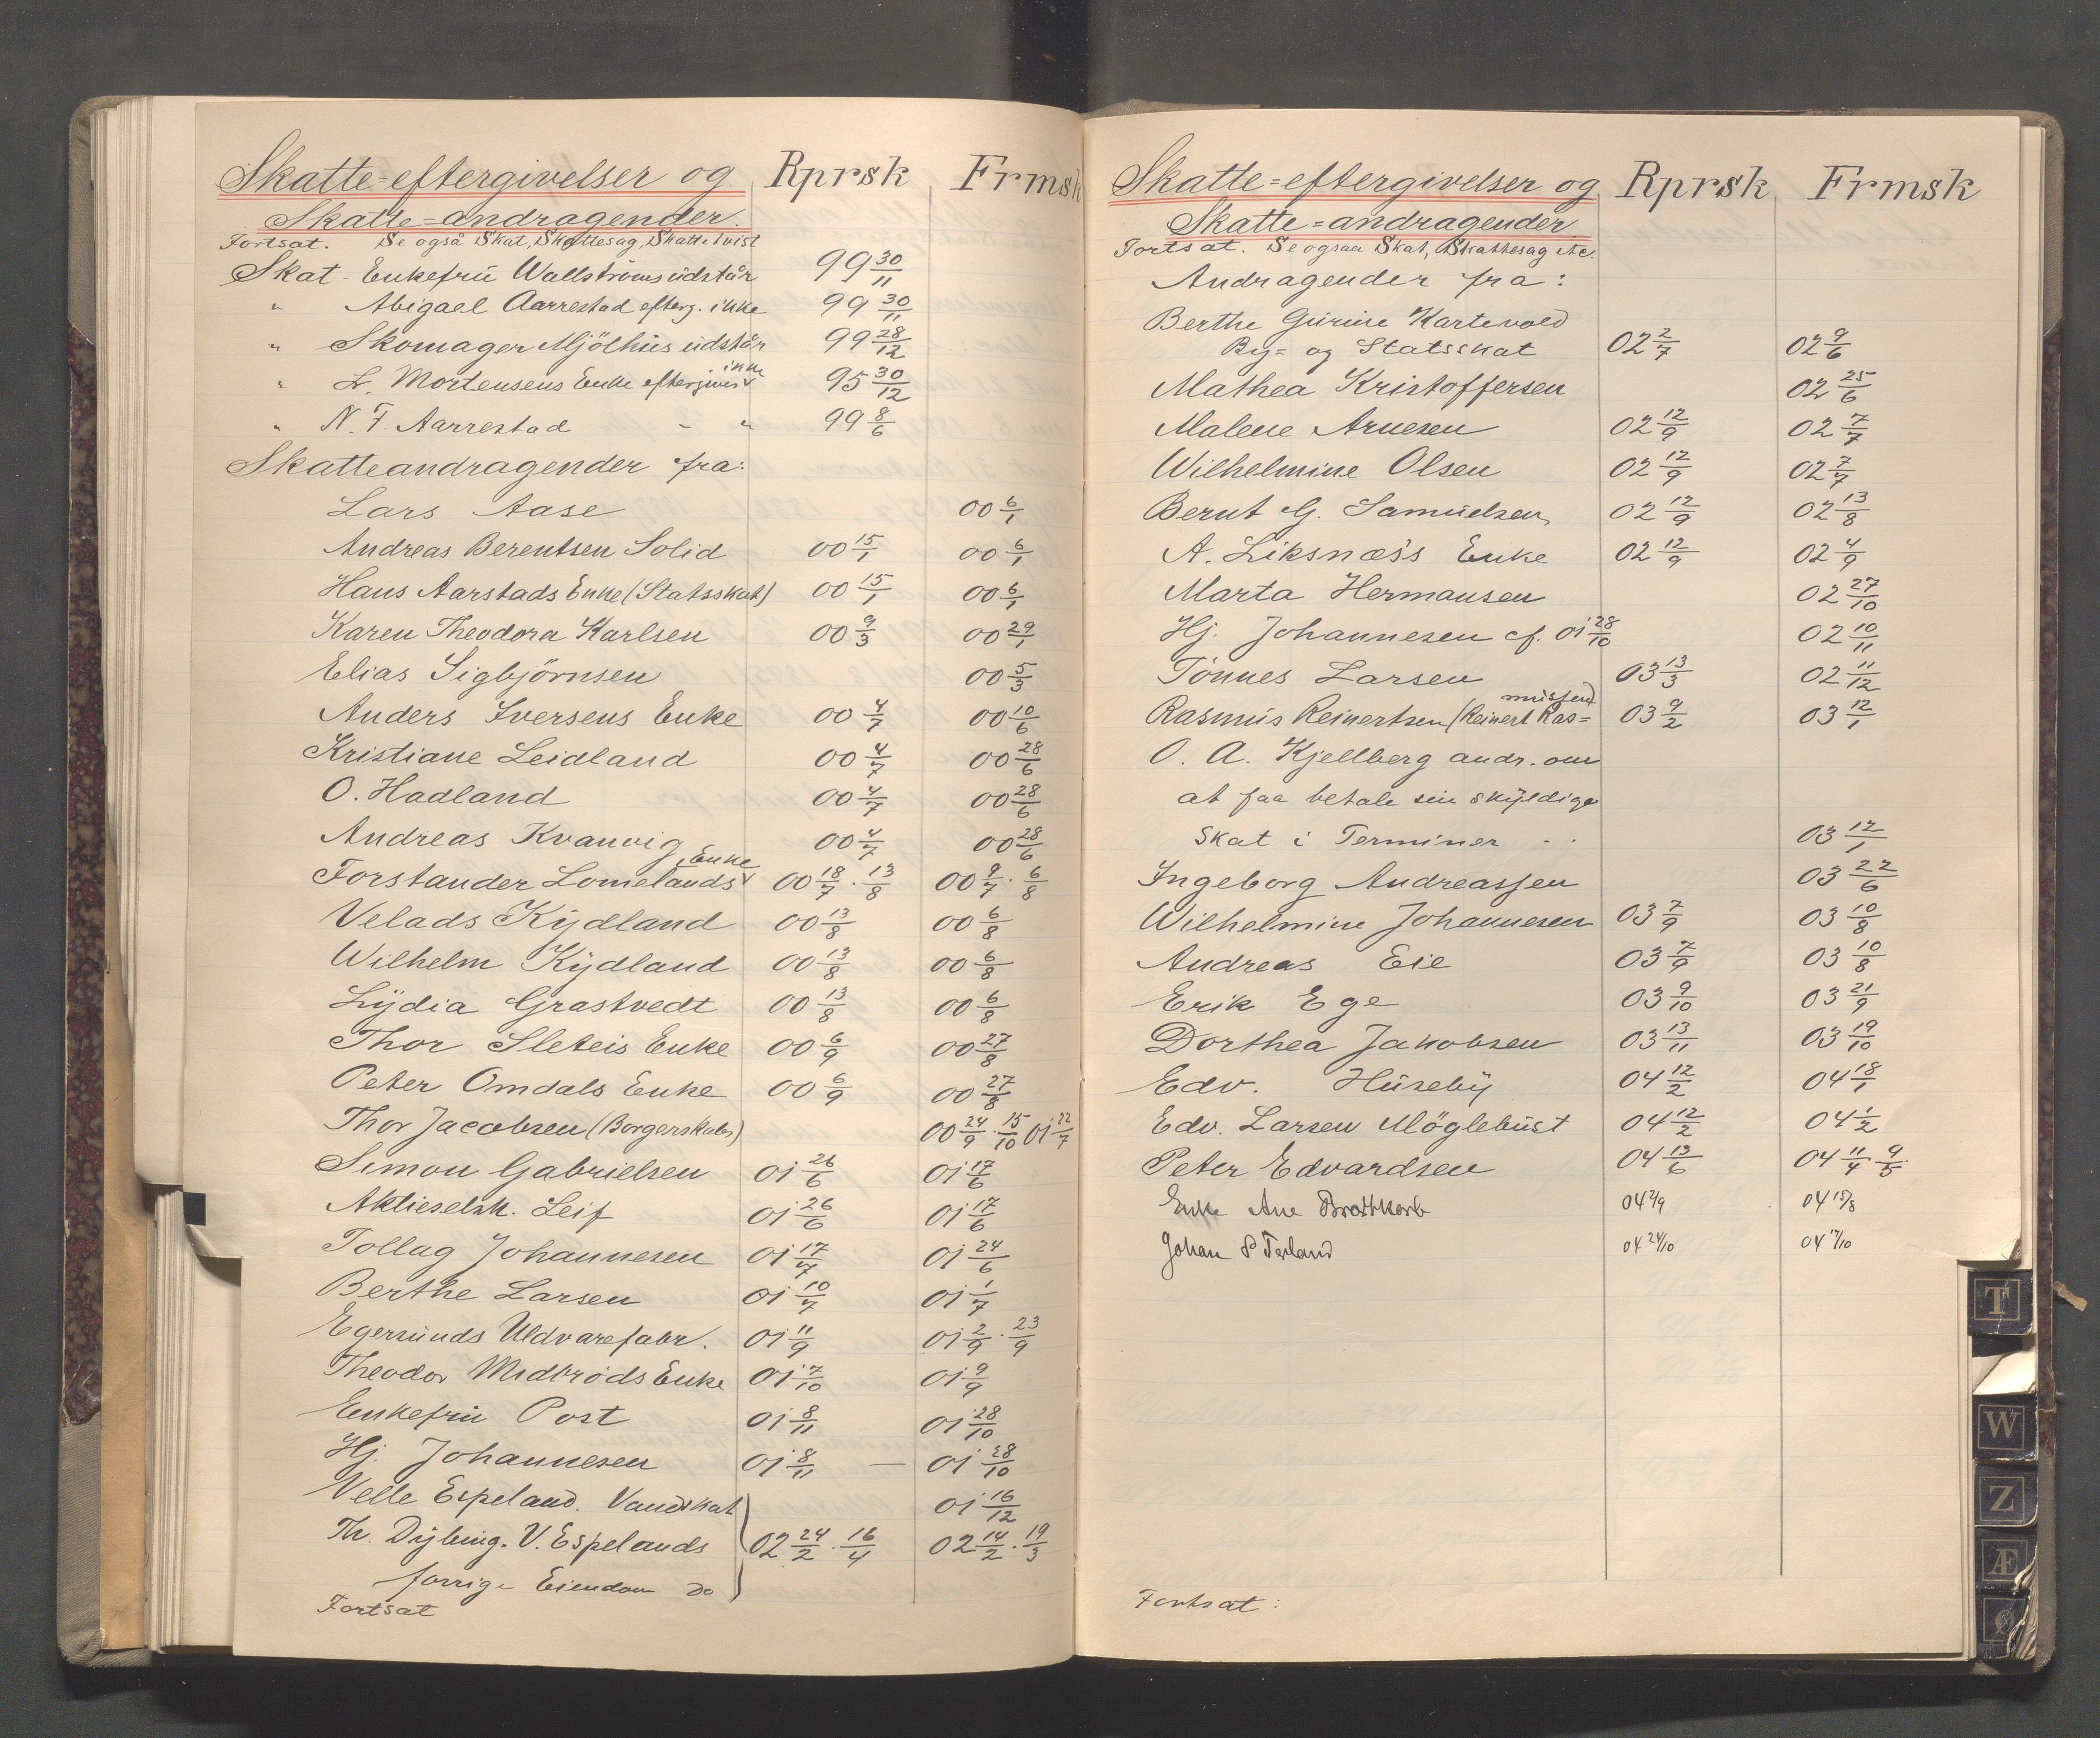 Skatte=eftergivelser og Rprsk Frmsk
Skatte=andragender.
Fortsat. Se også Skat, Skattesag, Skattetvist
Skat - Enkefrü Wallströms üdstår 99 30/11
" Abigael Aarrestad efterg. ikke 99 30/11
" Skomager Mjölhüs üdstår 99 28/12
" L. Mortensens Enke eftergives ikke 95 30/12
" N. F. Aarrestad " " 99 8/6
Skatteandragender fra:
Lars Aase 00 6/1
Andreas Berentsen Solid 00 15/1 00 6/1
Hans Aarstads Enke (Statsskat) 00 15/1 00 6/1
Karen Theodora Karlsen 00 9/3 00 29/1
Elias Sigbjörnsen 00 5/3
Anders Iversens Enke 00 4/7 00 10/6
Kristiane Leidland 00 4/7 00 28/6
O. Hadland 00 4/7 00 28/6
Andreas Kvanvig 00 4/7 00 28/6
Forstander Lomelands Enke 00 18/7 · 13/8 00 9/7 · 6/8
Velads Kydland 00 13/8 00 6/8
Wilhelm Kydland 00 13/8 00 6/8
Lydia Grastvedt 00 13/8 00 6/8
Thor Sleteis Enke 00 6/9 00 27/8
Peter Omdals Enke 00 6/9 00 27/8
Thor Jacobsen (Borgerskabs) 00 24/9 · 15/10 01 22/7
Simon Gabrielsen 01 26/6 01 17/6
Aktieselsk. Leif 01 26/6 01 17/6
Tollag Johannesen 01 17/7 01 24/6
Berthe Larsen 01 10/7 01 1/7
Egersünds Uldvarefabr. 01 11/9 01 2/9 · 23/9
Theodor Midbröds Enke 01 7/10 01 9/9
Enkefrü Post 01 8/11 01 28/10
Hj. Johannesen 01 8/11 — 01 28/10
Velle Espeland. Vandskat 01 16/12
Th. Dybing. V. Espelands 02 24/2 · 16/4 02 14/2 · 19/3
forrige Eiendom Do
Fortsat
Skatte=eftergivelser og Rprsk Frmsk
Skatte=andragender
Fortsat. Se ogsaa Skat, Skattesag etc.
Andragender fra:
Berthe Gürine Kartevold
By= og Statsskat 02 2/7 02 9/6
Mathea Kristoffersen 02 25/6
Malene Arnesen 02 12/9 02 7/7
Wilhelmine Olsen 02 12/9 02 7/7
Bernt G. Samüelsen 02 12/9 02 13/8
A. Liksnæs's Enke 02 12/9 02 4/9
Marta Hermansen 02 27/10
Hj. Johannesen cf. 01 28/10 02 10/11
Tönnes Larsen 03 13/3 02 11/12
Rasmüs Reinertsen (Reinert Ras=müssen) 03 9/2 03 12/1
O. A. Kjellberg andr. om
at faa betale sin skyldige
Skat i Terminer . . 03 12/1
Ingeborg Andreassen 03 22/6
Wilhelmine Johannesen 03 7/9 03 10/8
Andreas Eie 03 7/9 03 10/8
Erik Ege 03 9/10 03 21/9
Dorthea Jakobsen 03 13/11 03 19/10
Edv. Hüseby 04 12/2 04 18/1
Edv. Larsen Möglebüst 04 12/2 04 1/2
Peter Edvardsen 04 13/6 04 11/4 · 9/5
Enke Ane 04 2/9 04 15/8
Johan S Terland 04 24/10 04 17/10
Fortsat:
T
W
Z
Æ
Ø